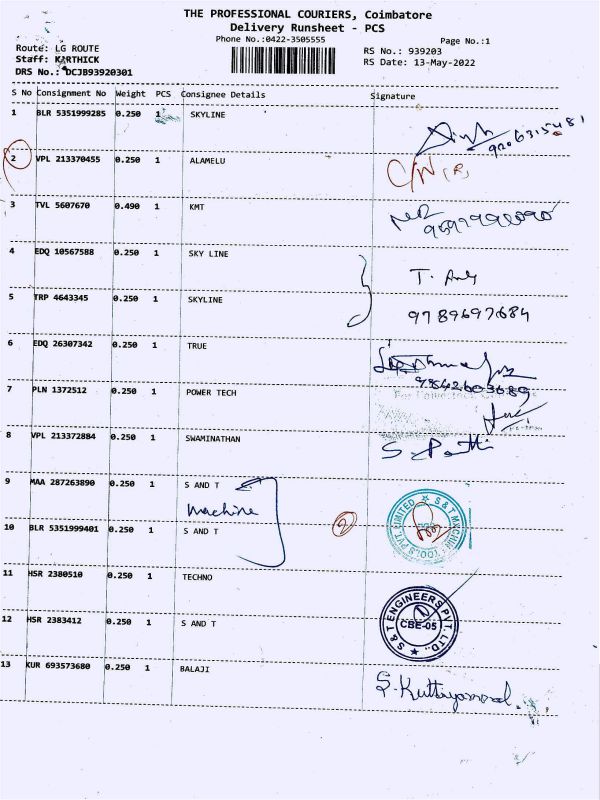 THE PROFESSIONAL COURIERS, Coimbatore
Delivery Runsheet - PCS
Phone No.:0422-3505555
Page No.:1
Route: LG ROUTE
RS No.: 939203
Staff: KARTHICK
RS Date: 13-May-2022
DRS No.: DCJB93920301
S No Consignment No Weight PCS Consignee Details Signature
1 BLR 5351999285 0.250 1 SKYLINE
2 VPL 213370455 0.250 1 ALAMELU
3 TVL 5607670 0.490 1 KMT
4 EDQ 10567588 0.250 1 SKY LINE
5 TRP 4643345 0.250 1 SKYLINE
9789697684
6 EDQ 26307342 0.250 1 TRUE
7 PLN 1372512 0.250 1 POWER TECH
8 VPL 213372884 0.250 1 SWAMINATHAN
9 MAA 287263890 0.250 1 S AND T
Machine
10 BLR 5351999401 0.250 1 S AND T
2
11 HSR 2380510 0.250 1 TECHNO
12 HSR 2383412 0.250 1 S AND T
S & T ENGINEERS PVT LTD.,
CBE-05
13 KUR 693573680 0.250 1 BALAJI